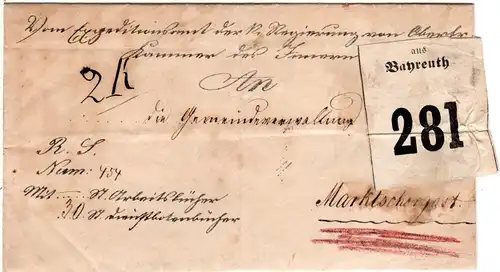 Vom Expeditionsamt der k. Regierung von Oberfr.
Kammer des Innern
2 R
An
die Gemeindeverwaltung
aus
Bayreuth
281
R. S.
Num: 454
Mit ..... St. Arbeitsbücher
30 St. Dienstbotenbücher
Marktschorgast.